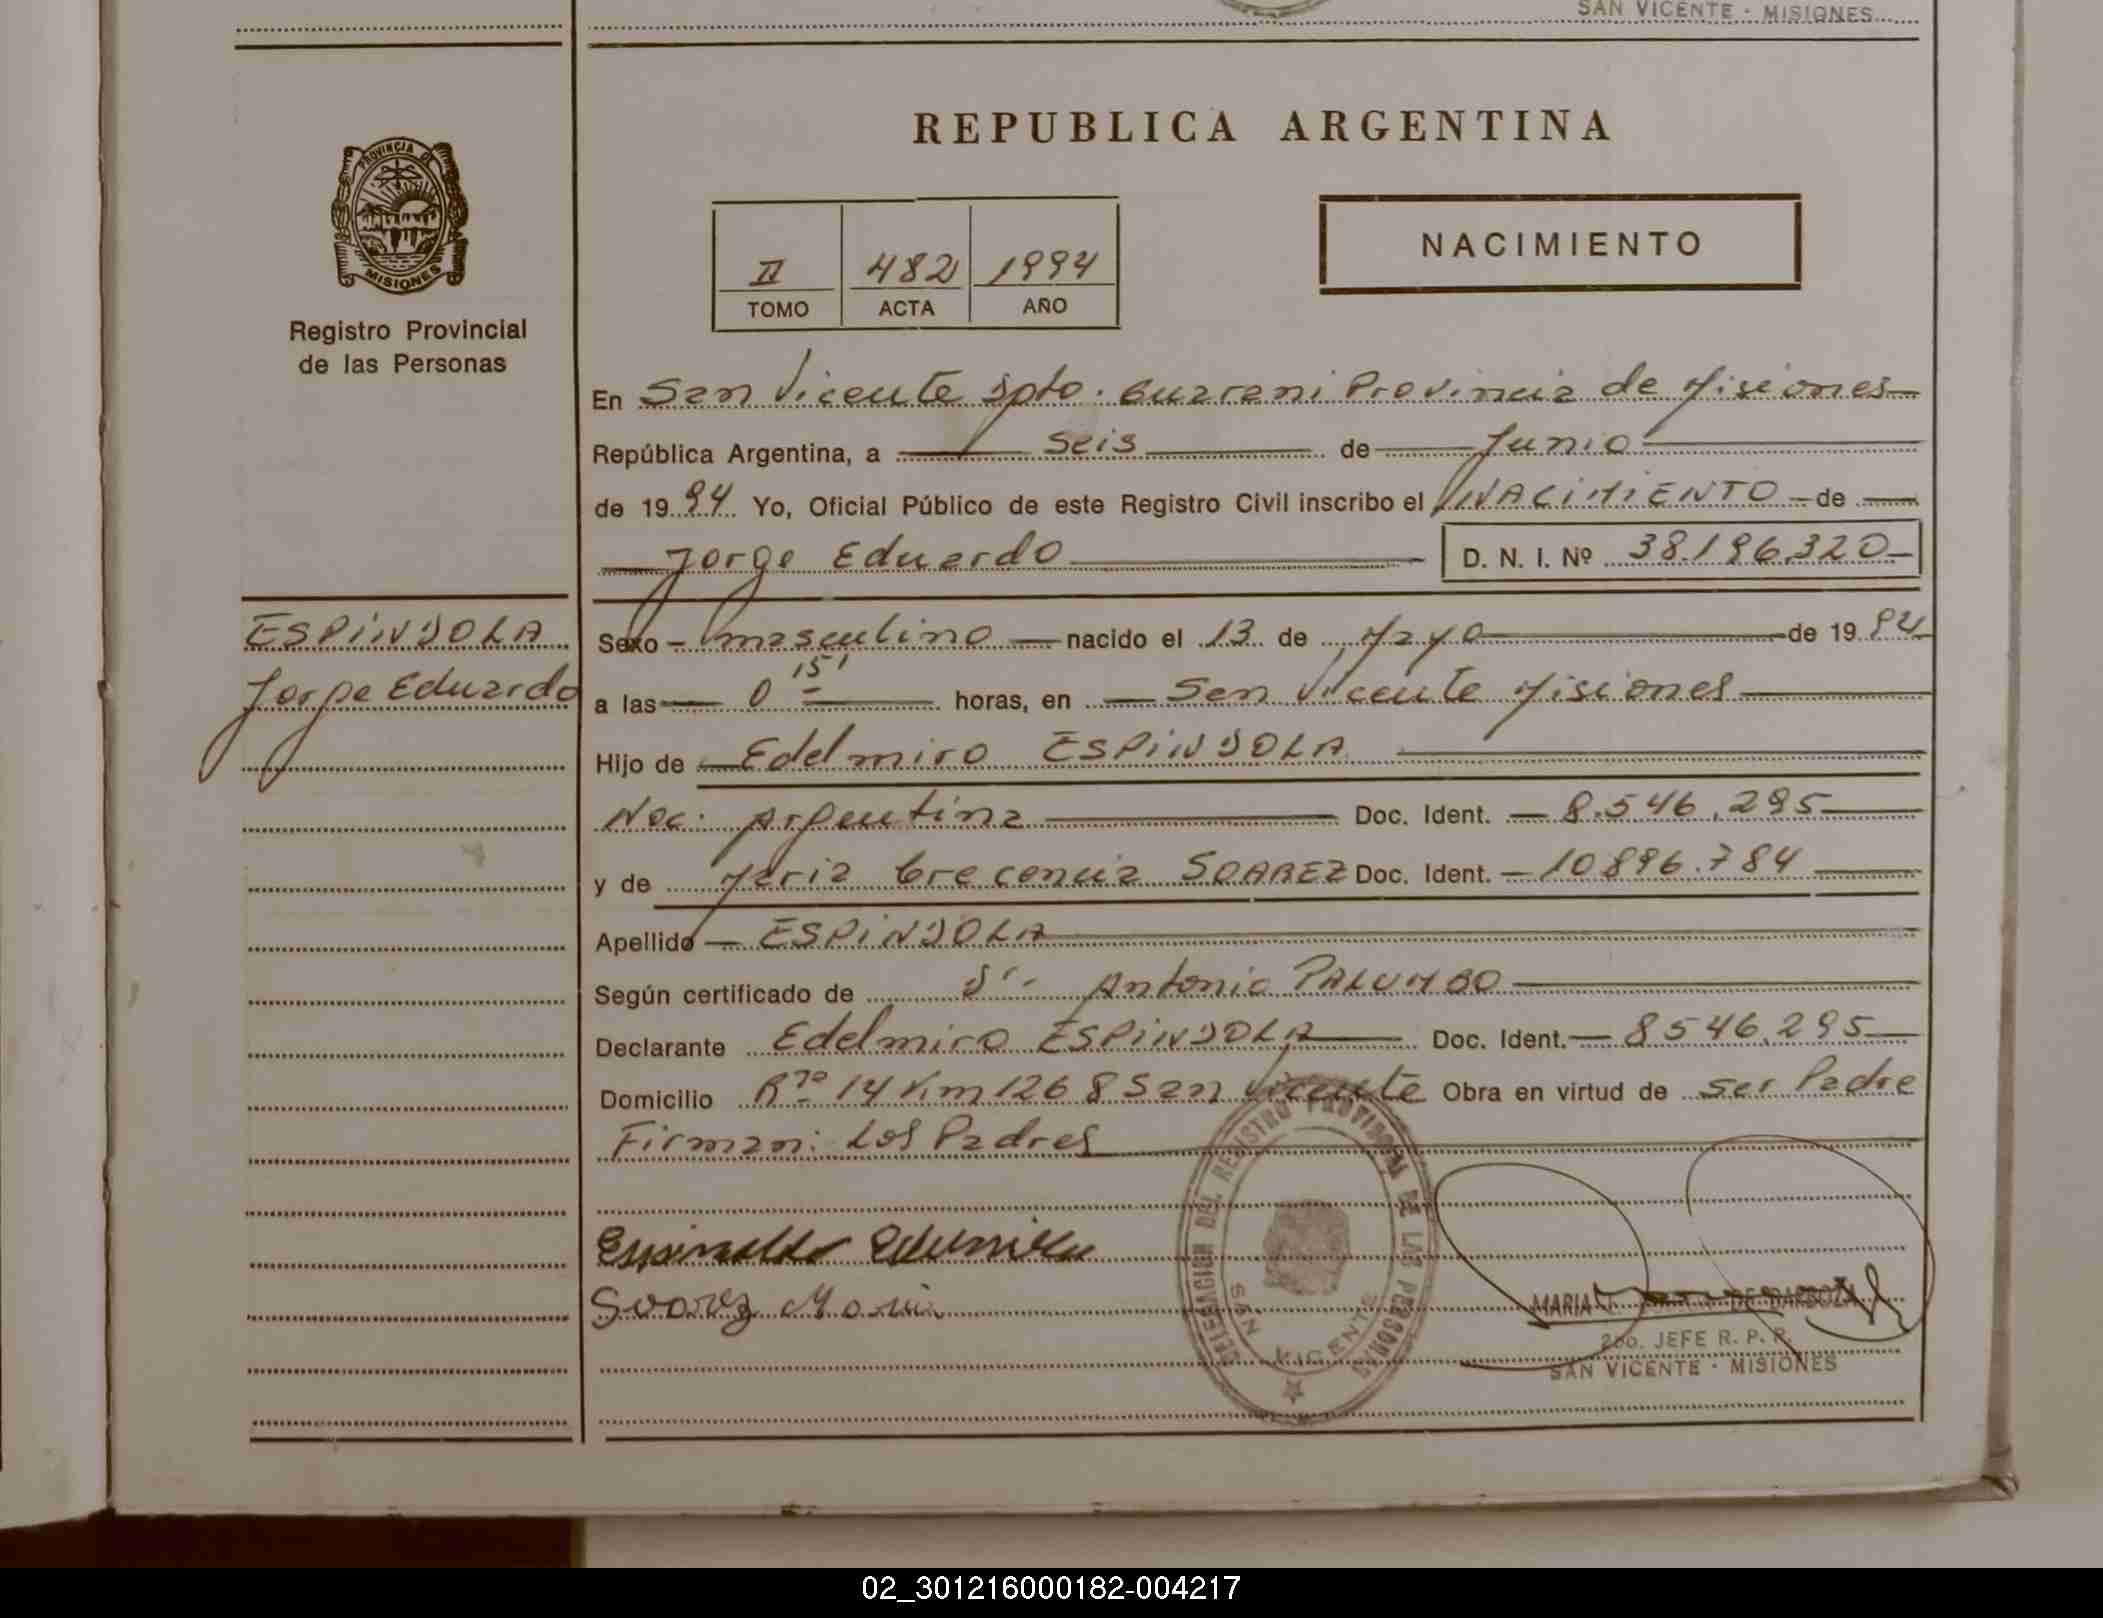 SAN VICENTE - MISIONES
PROVINCIA DE
MISIONES
Registro Provincial
de las Personas
REPUBLICA ARGENTINA
II 482 1994
TOMO ACTA AÑO
NACIMIENTO
En San Vicente Dpto. Guarani Provincia de Misiones
República Argentina, a seis de Junio
de 1994 Yo, Oficial Público de este Registro Civil inscribo el NACIMIENTO de
Jorge Eduardo D. N. I. Nº 38.196.320
ESPINDOLA
Jorge Eduardo
Sexo masculino nacido el 13 de Mayo de 1994
a las 0 15' horas, en San Vicente Misiones
Hijo de Edelmiro ESPINDOLA
Nac: Argentina Doc. Ident. 8.546.295
y de Maria Crecencia SOAREZ Doc. Ident. 10896.784
Apellido ESPINDOLA
Según certificado de Dr. Antonio PALUMBO
Declarante Edelmiro ESPINDOLA Doc. Ident. 8546.295
Domicilio Rta 14 Km 1268 San Vicente Obra en virtud de ser Padre
Firman: Los Padres
DELEGACION DEL REGISTRO PROVINCIAL DE LAS PERSONAS
SAN VICENTE
MARIA DE BARBOZA
2do. JEFE R. P. P.
SAN VICENTE - MISIONES
02_301216000182-004217